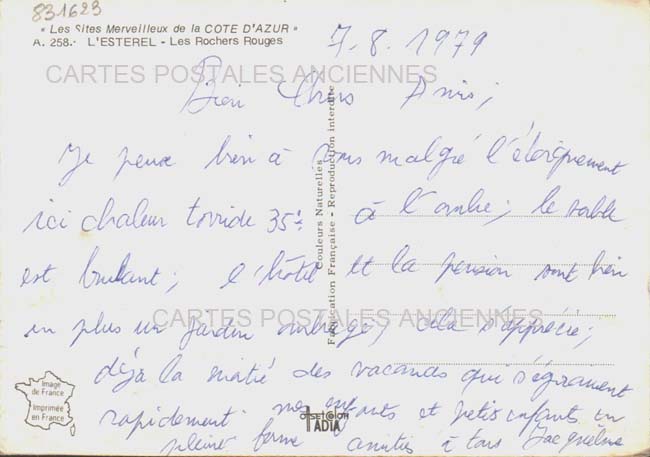 831623
" Les Sites Merveilleux de la COTE D'AZUR "
A. 258. - L'ESTEREL - Les Rochers Rouges
7.8.1979
CARTES POSTALES ANCIENNES
Bien Chers Amis,
Je pense bien à vous malgré l'éloignement
ici chaleur torride 35° à l'ombre; le sable
est brulant; l'hôtel et la pension sont bien
en plus un jardin ombragé, cela s'apprécie;
CARTES POSTALES ANCIENNES
déjà la moitié des vacances qui s'égrainent
rapidement. mes enfants et petits enfants en
pleine forme amitiés à tous Jacqueline
Couleurs Naturelles
Fabrication Française - Reproduction interdite
Image
de France
Imprimée
en France
TADIA